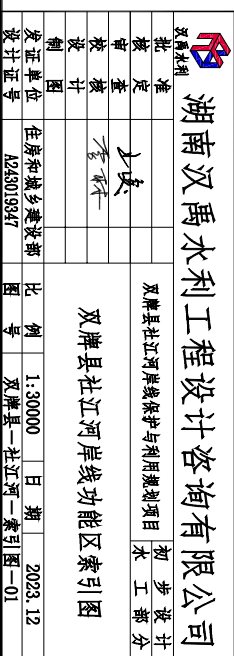 汉禹水利
湖南汉禹水利工程设计咨询有限公司
批准
核定
双牌县社江河岸线保护与利用规划项目
初步设计
审查
水工部分
校核
设计
双牌县社江河岸线功能区索引图
制图
发证单位 住房和城乡建设部 比例 1:30000 日期 2023.12
设计证号 A243019347 图号 双牌县-社江河-索引图-01